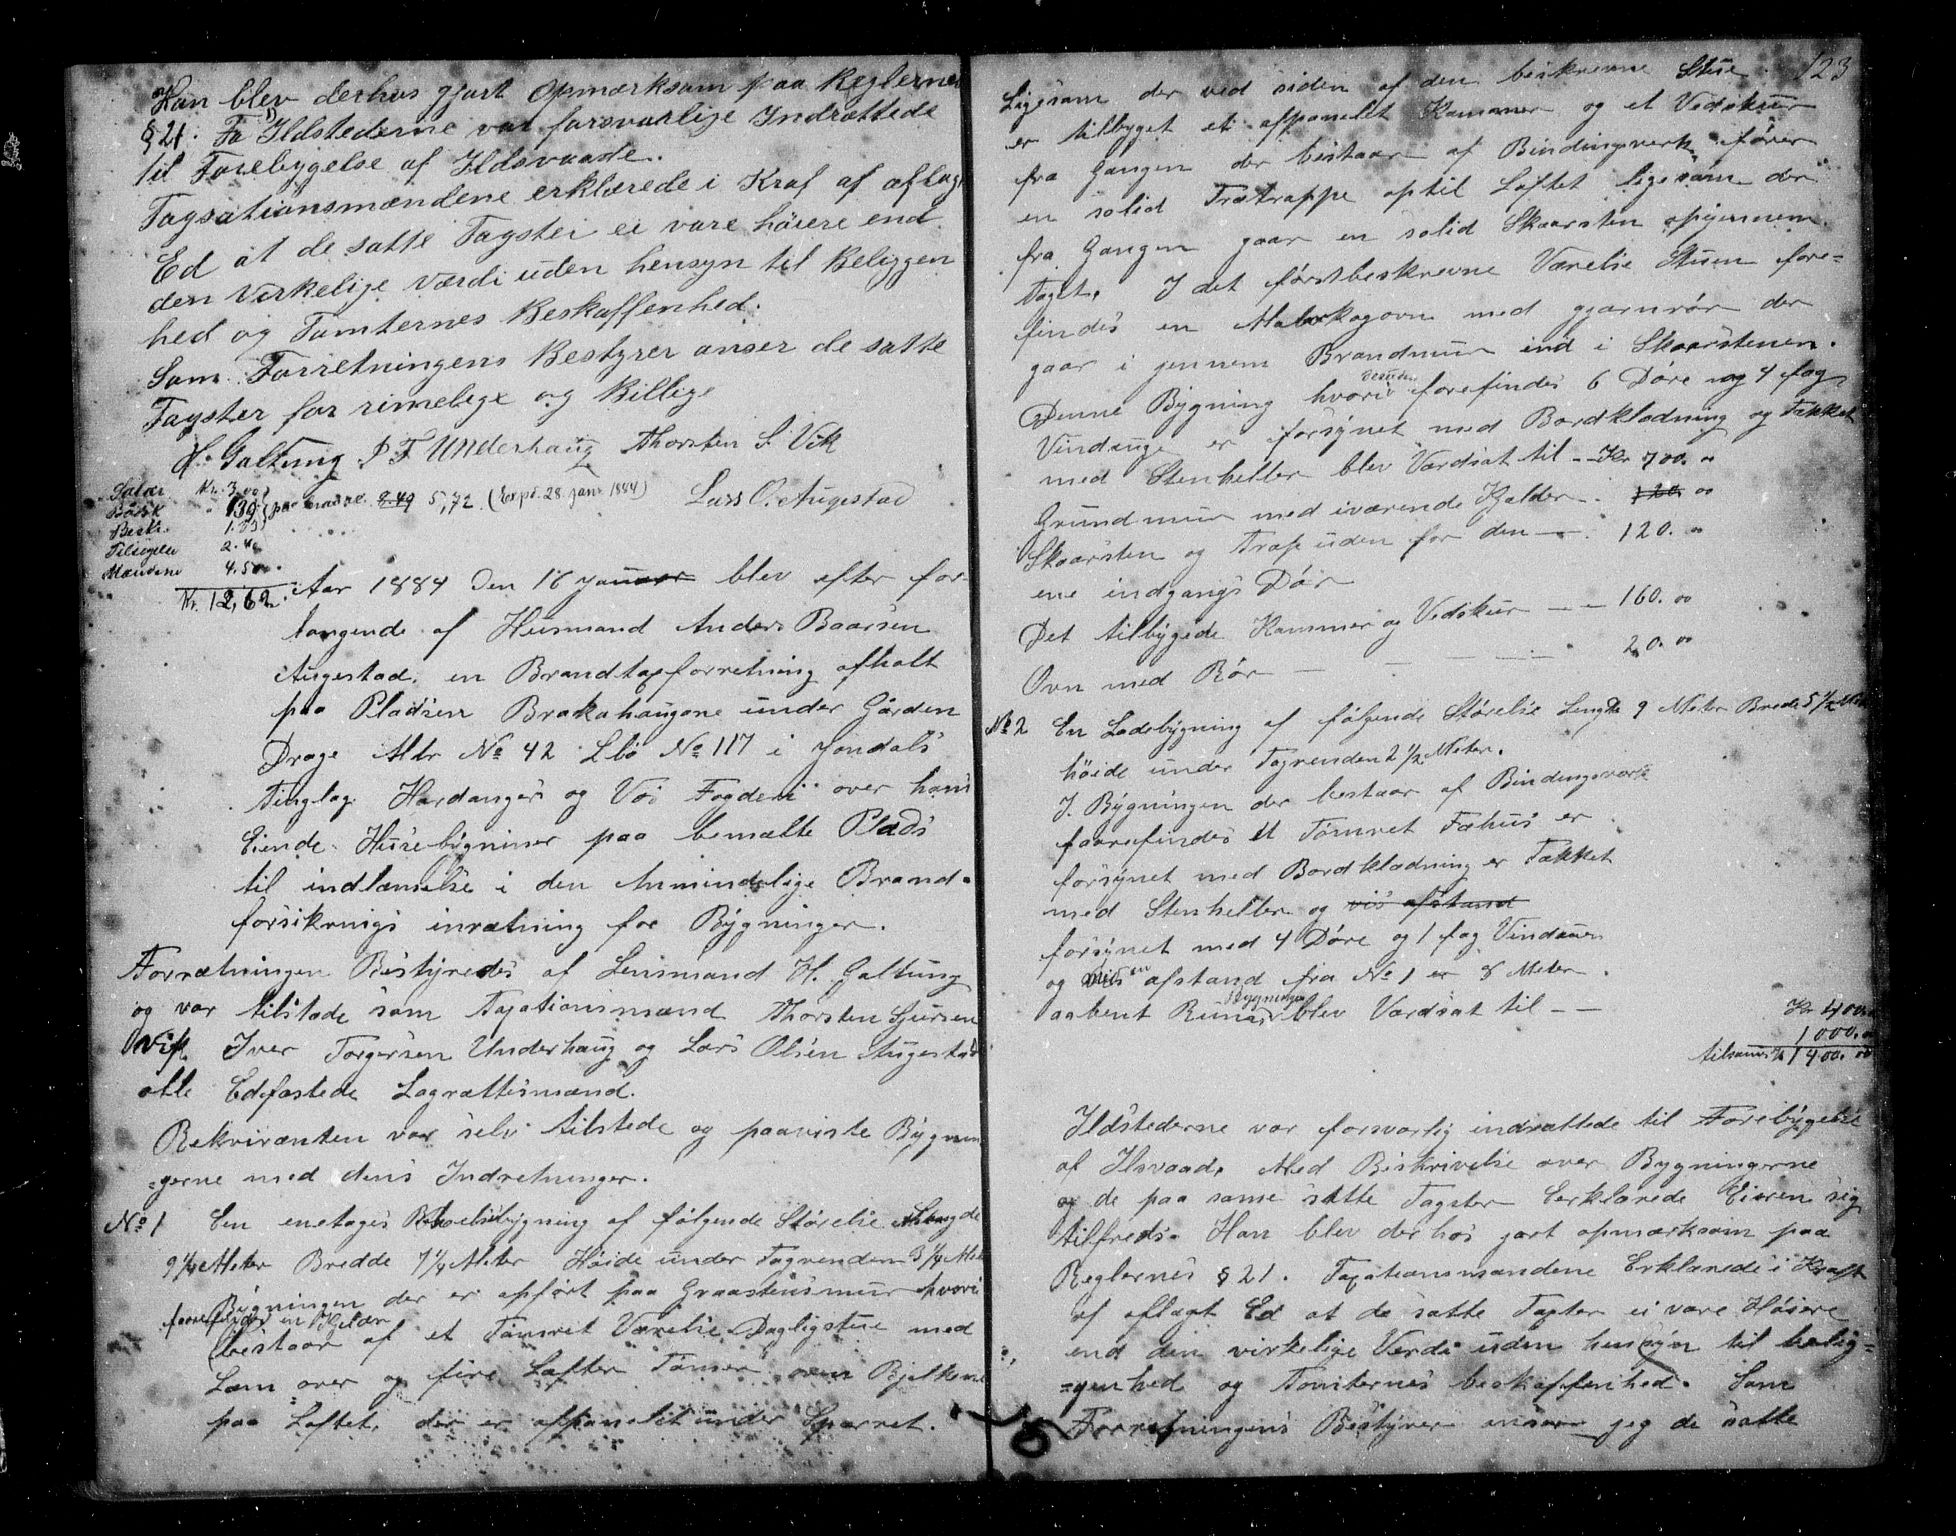 Han blev derhos gjort Opmærksom paa Reglernes
§ 21. Ildstederne var forsvarlige Indrættede
til Forebyggelse af Ildsvaade.
Taxationsmændene erklærede i Kraf af aflagt
Ed at de satte Taxster ei vare høiere end
den Virkelige Værdi uden hensyn til Beliggen
hed og Tomternes Beskaffenhed.
Som Forretningens Bestyrer anser de satte
Taxster for rimelige og Billige
H. Galtung I T Underhaug Thorsten S. Vik
Lars O. Augestad
Salær Kr. 3,00
5,72 (Exp. 28 Janr 1884)
Besk.
Tilsigelse 2.40
Mændene 4.50
Kr. 12,62.
Aar 1884 Den 16 Januar blev efter for
langende af Husmand Anders Baarsen
Augestad, en Brandtaxforretning afholt
paa Pladsen Brakahaugane under Gården
Drage Mtr No 42 Lbo No 117 i Jondals
Tinglag Hardanger og Vos Fogderi over hans
Eiende Husebygniner paa bemælte Plads
til indlæmelse i den Almindelige Brand-
forsikrnigs inrætning for Bygninger.
Forrætningen Bestyredes af Lensmand H. Galtung
og var tilstæde som Taxationsmænd Thorsten Sjursen
Vik, Iver Torgersen Underhaug og Lars Olsen Augestad
alle Edfæstede Lagrættesmænd.
Rekvirænten var selv tilstede og paaviste Bygnin
=gerne med dens Indretninger.
No 1 En enetages Beboelsebygning af følgende Størelse Længde
9 1/4 Meter Bredde 7 1/4 Meter Høide under Tagrenden 3 1/4 Met
Bygningen der er opført paa Graastensmur hvori
foorefindes en Kjelder
bestaar af et Tømret Værelse, Dagligstue med
Læm over og fire Lafter Tømer oven Bjelkerne
paa Loftet, der er afpanelet under Sparret.
123
Ligesom der ved siden af den beskrevne Stue
er tilbyget et afpanelet Kammer og et Vedskuur
fra Gangen der bestaar af Bindingsverk fører
en solid Trætrappe optil Loftet ligesom der
fra Gangen gaar en solid Skaarsten opgjennem
Taget. I det førstbeskrevne Værelse Stuen fore=
findes en Kagovn med gjærnrør der
gaar i jennem Brandmur ind i Skaarstenen.
Denne Bygning hvori desuden forefindes 6 Døre og 4 fag
Vinduge er forsynet med Bordklædning og Tækket
med Stenheller blev Værdsat til -- Kr 700. 00
Grundmur med iværende Kjelder - . 120 00
Skaarsten og Trap uden for den - . 120. 00
ene indgangs Dør
Det tilbygede Kammer og Vedskur - - 160. 00
Ovn med Rør - - - 20. 00
No 2 En Ladebygning af følgende Størelse Lengde 9 Meter Brede 5 1/2 Met
høide under Tagrenden 2 1/2 Meter.
I. Bygningen der bestaar af Bindingsværk
foorefindes et Tømret Fæhus er
forsynet med Bordklædning er Tækket
med Stenheller og vis afstand
forsynet med 4 Døre og 1 fag Vinduer
og afstand fra No 1 er 8 Meter.
aabent Rum, Bygningen blev Værdsat til - - Kr 400.
1000.00
tilsams Kr 1400. 00
Ildstederne var forsvarlig indrættede til Forebygelse
af Ilsvaade, Med Beskrivelse over Bygningerne
og de paa same satte Taxster Eerklærede Eieren sig
tilfreds. Han blev derhos gort opmærksom paa
Reglernes § 21. Taxationsmændene Erklærede i Kraft
af aflagt Ed at de satte Taxter ei vare Høiere
end den virkelige Verdi uden hensyn til belig=
=genhed og Tomternes beskaffenhed. Som
Forretningens Bestyrer anser jeg de satte